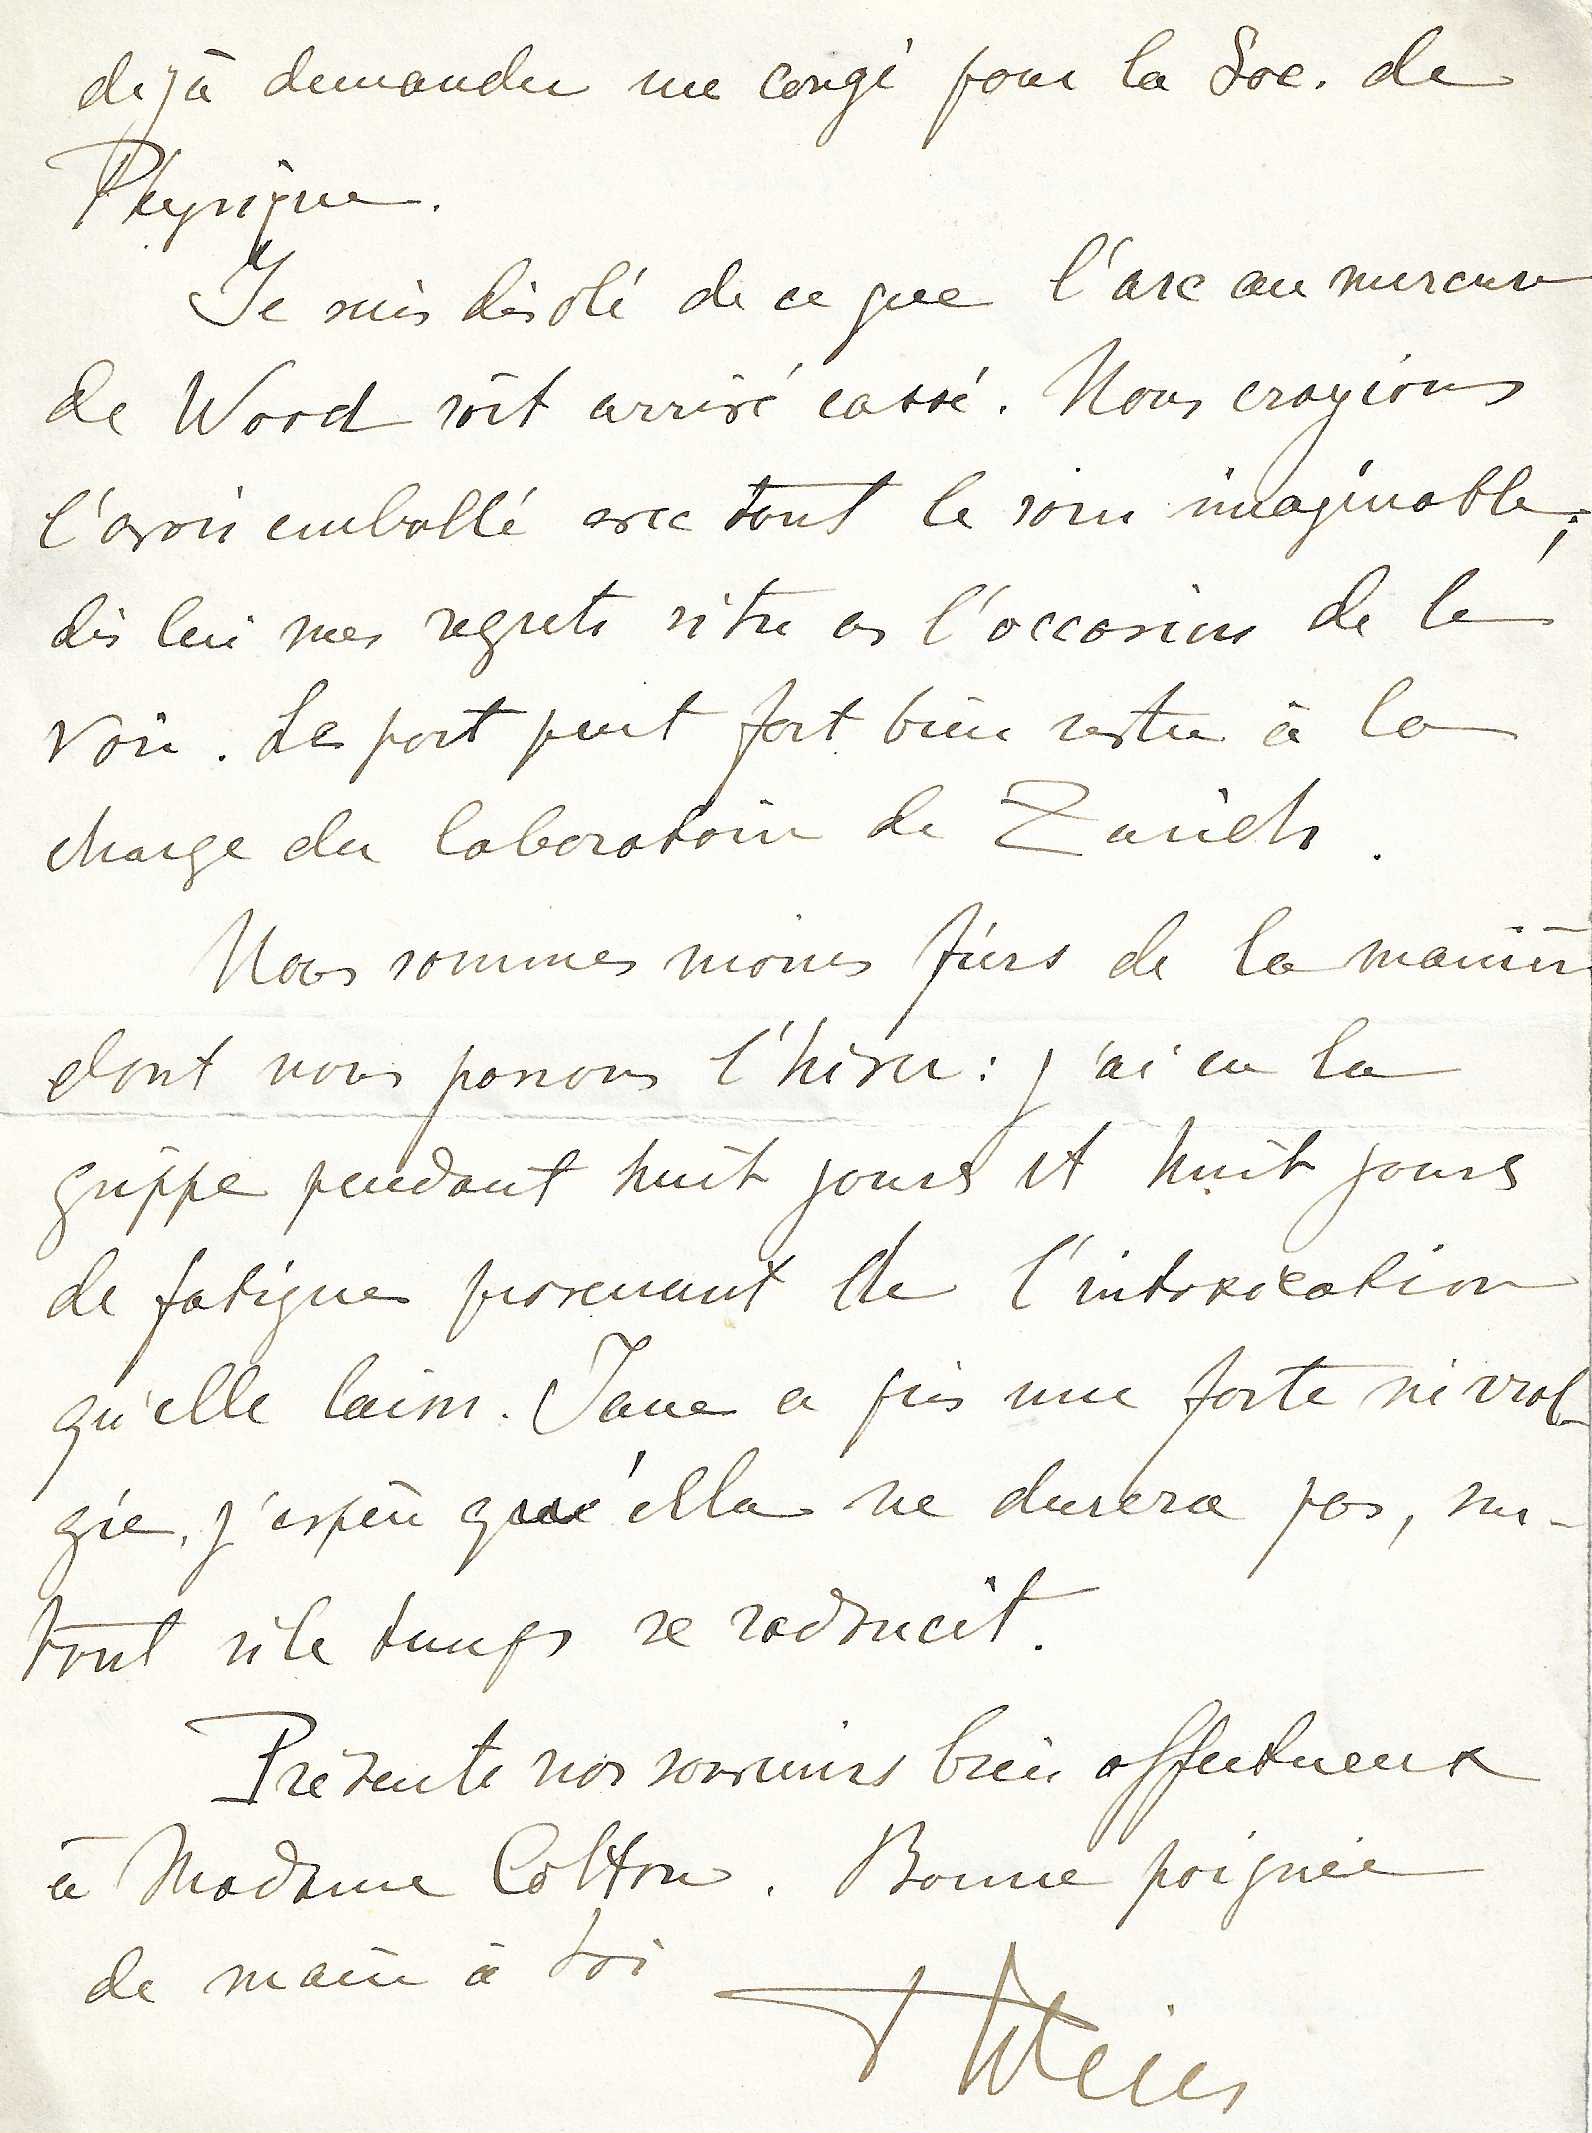 déjà demander un congé pour la Soc. de
Physique.
Je suis désolé de ce que l'arc au mercure
de Wood soit arrivé cassé. Nous croyions
l'avoir emballé avec tout le soin imaginable;
dis lui mes regrets si tu as l'occasion de le
voir. Le port peut fort bien rester à la
charge du laboratoire de Zurich.
Nous sommes moins fiers de la manière
dont nous passons l'hiver: j'ai eu la
grippe pendant huit jours et huit jours
de fatigue provenant de l'intoxication
qu'elle laisse. Jane a pris une forte névral-
gie, j'espère qu'elle ne durera pas, sur-
tout si le temps se radoucit.
Présente nos souvenirs bien affectueux
à Madame Cotton. Bonne poignée
de main à toi
P Weiss